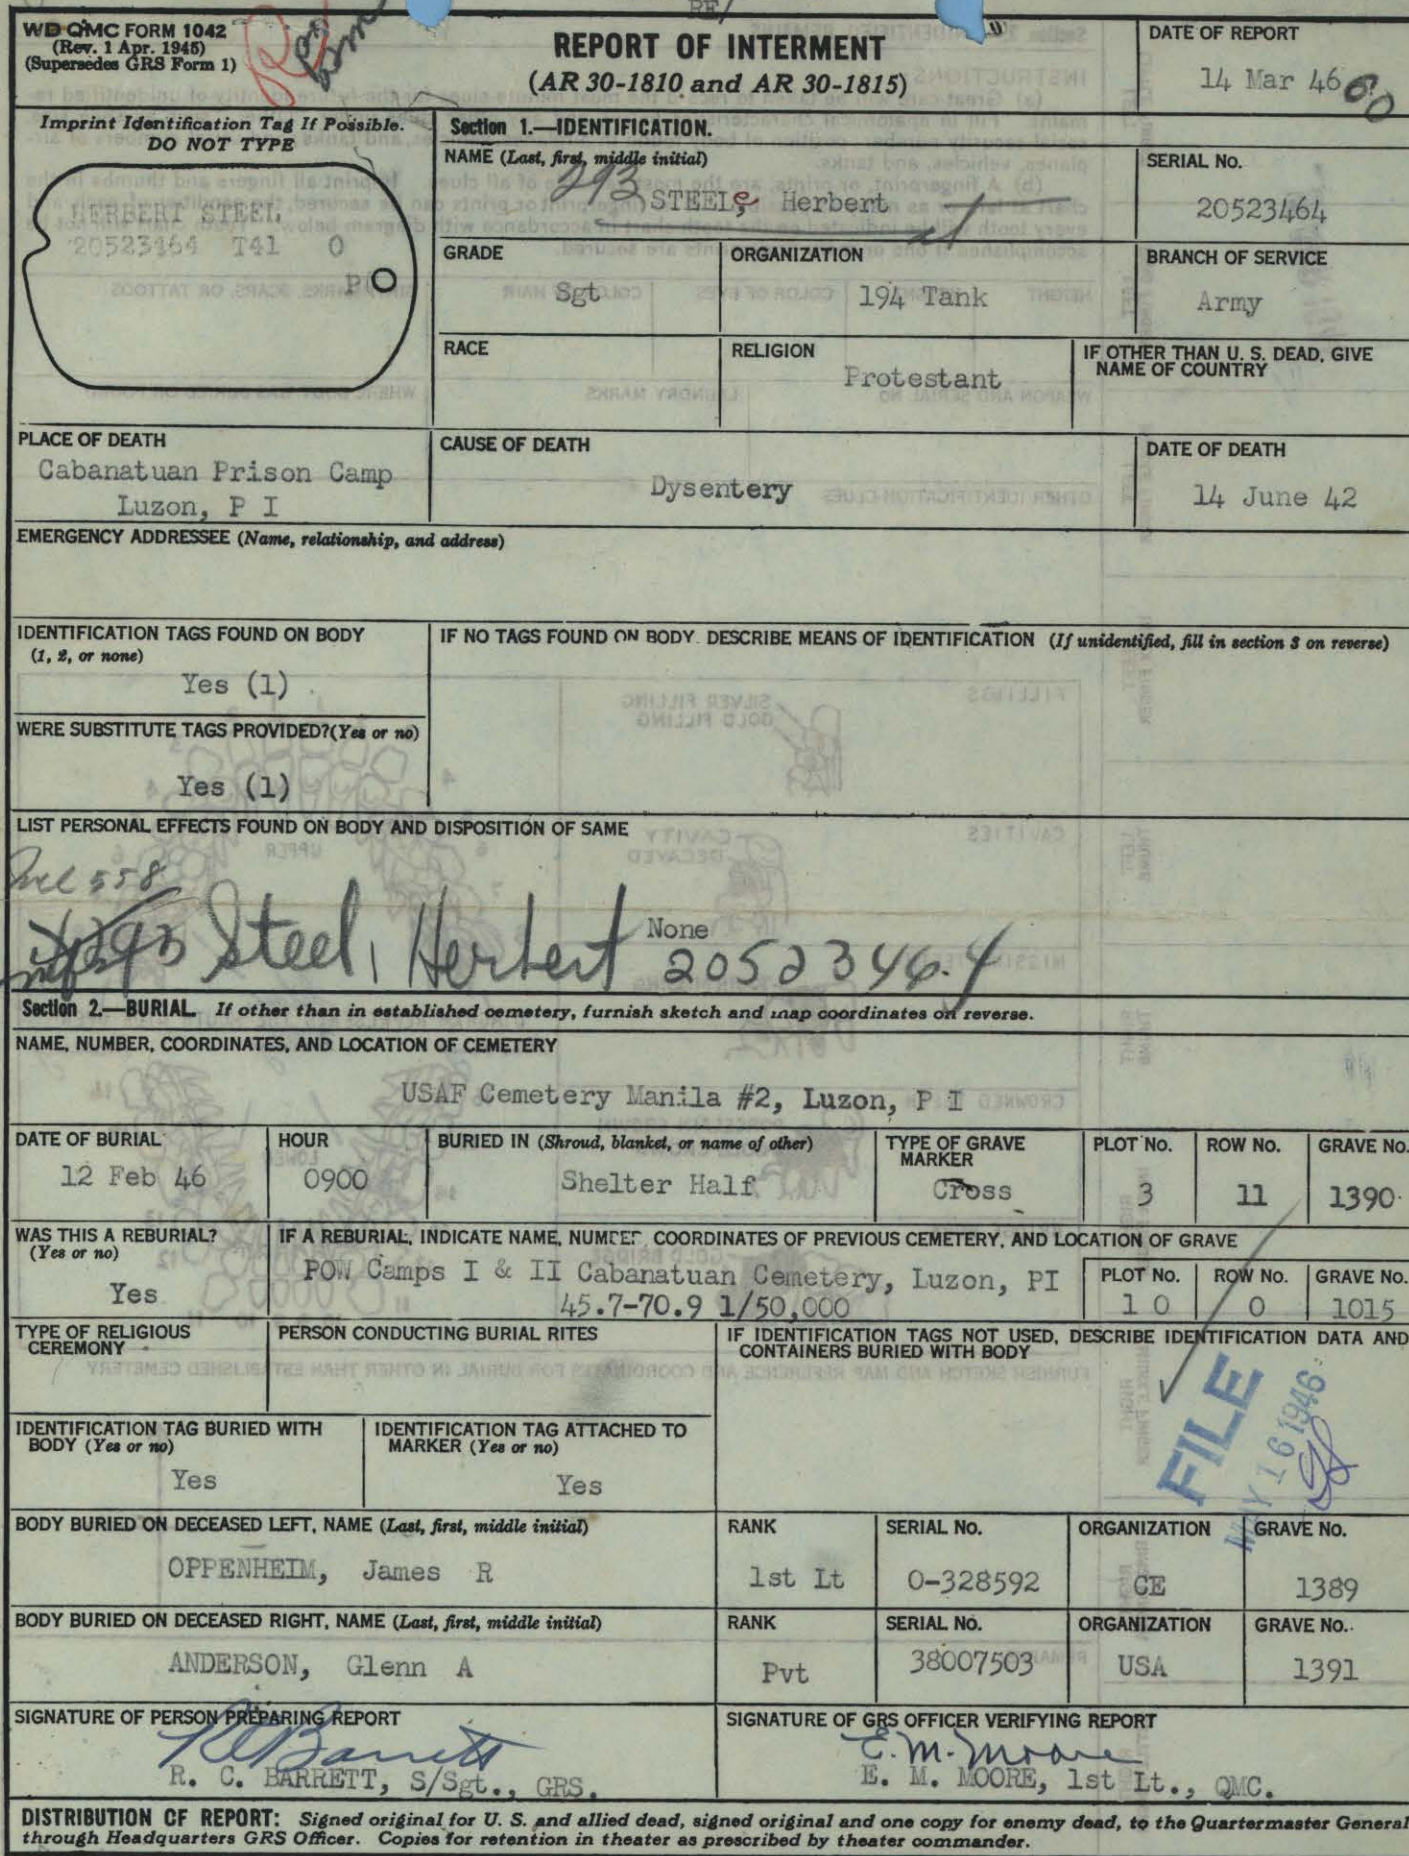 RE/
WD QMC FORM 1042
(Rev. 1 Apr. 1945)
(Supersedes GRS Form 1)
REPORT OF INTERMENT
(AR 30-1810 and AR 30-1815)
DATE OF REPORT
14 Mar 46
Imprint Identification Tag If Possible.
DO NOT TYPE
HERBERT STEEL
20523464 T41 O
P
Section 1.—IDENTIFICATION.
NAME (Last, first, middle initial)
293 STEELe Herbert
SERIAL No.
20523464
GRADE
Sgt
ORGANIZATION
194 Tank
BRANCH OF SERVICE
Army
RACE
RELIGION
Protestant
IF OTHER THAN U. S. DEAD, GIVE
NAME OF COUNTRY
PLACE OF DEATH
Cabanatuan Prison Camp
Luzon, P I
CAUSE OF DEATH
Dysentery
DATE OF DEATH
14 June 42
EMERGENCY ADDRESSEE (Name, relationship, and address)
IDENTIFICATION TAGS FOUND ON BODY
(1, 2, or none)
Yes (1)
IF NO TAGS FOUND ON BODY. DESCRIBE MEANS OF IDENTIFICATION (If unidentified, fill in section 3 on reverse)
WERE SUBSTITUTE TAGS PROVIDED?(Yes or no)
Yes (1)
LIST PERSONAL EFFECTS FOUND ON BODY AND DISPOSITION OF SAME
558
None
293 Steel, Herbert 20523464
Section 2.—BURIAL. If other than in established cemetery, furnish sketch and map coordinates on reverse.
NAME, NUMBER, COORDINATES, AND LOCATION OF CEMETERY
USAF Cemetery Manila #2, Luzon, P I
DATE OF BURIAL
12 Feb 46
HOUR
0900
BURIED IN (Shroud, blanket, or name of other)
Shelter Half
TYPE OF GRAVE
MARKER
Cross
PLOT No.
3
ROW No.
11
GRAVE No.
1390
WAS THIS A REBURIAL?
(Yes or no)
Yes
IF A REBURIAL, INDICATE NAME, NUMBER, COORDINATES OF PREVIOUS CEMETERY, AND LOCATION OF GRAVE
POW Camps I & II Cabanatuan Cemetery, Luzon, PI
45.7-70.9 1/50,000
PLOT No.
1 0
ROW No.
0
GRAVE No.
1015
TYPE OF RELIGIOUS
CEREMONY
PERSON CONDUCTING BURIAL RITES
IF IDENTIFICATION TAGS NOT USED, DESCRIBE IDENTIFICATION DATA AND
CONTAINERS BURIED WITH BODY
FILE
MAY 16 1946
IDENTIFICATION TAG BURIED WITH
BODY (Yes or no)
Yes
IDENTIFICATION TAG ATTACHED TO
MARKER (Yes or no)
Yes
BODY BURIED ON DECEASED LEFT, NAME (Last, first, middle initial)
OPPENHEIM, James R
RANK
1st Lt
SERIAL No.
0-328592
ORGANIZATION
CE
GRAVE No.
1389
BODY BURIED ON DECEASED RIGHT, NAME (Last, first, middle initial)
ANDERSON, Glenn A
RANK
Pvt
SERIAL No.
38007503
ORGANIZATION
USA
GRAVE No.
1391
SIGNATURE OF PERSON PREPARING REPORT
R C Barrett
R. C. BARRETT, S/Sgt., GRS.
SIGNATURE OF GRS OFFICER VERIFYING REPORT
E. M. Moore
E. M. MOORE, 1st Lt., QMC.
DISTRIBUTION OF REPORT: Signed original for U. S. and allied dead, signed original and one copy for enemy dead, to the Quartermaster General
through Headquarters GRS Officer. Copies for retention in theater as prescribed by theater commander.